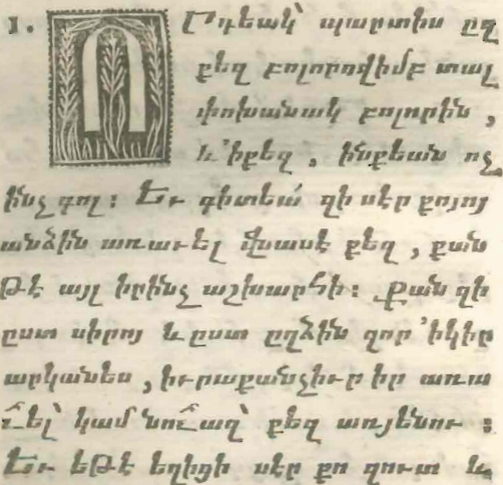 1. Որդեակ՝ պարտիս ըզ
քեզ բոլորովիմբ տալ
փոխանակ բոլորին ,
և ՚իքեզ , ինքեան ոչ
ինչ գոլ ։ Եւ գիտեա՛ զի սէր քոյոյ
անձին առաւել վնասէ քեզ , քան
թէ այլ իրինչ աշխարհի ։ Քան զի
ըստ սիրոյ և ըստ ըղձին զոր ՚իկիր
արկանես , իւրաքանչիւր իր առա
ւել՝ կամ նուազ՝ քեզ առյենու ։
Եւ եթէ եղիցի սէր քո զուտ և